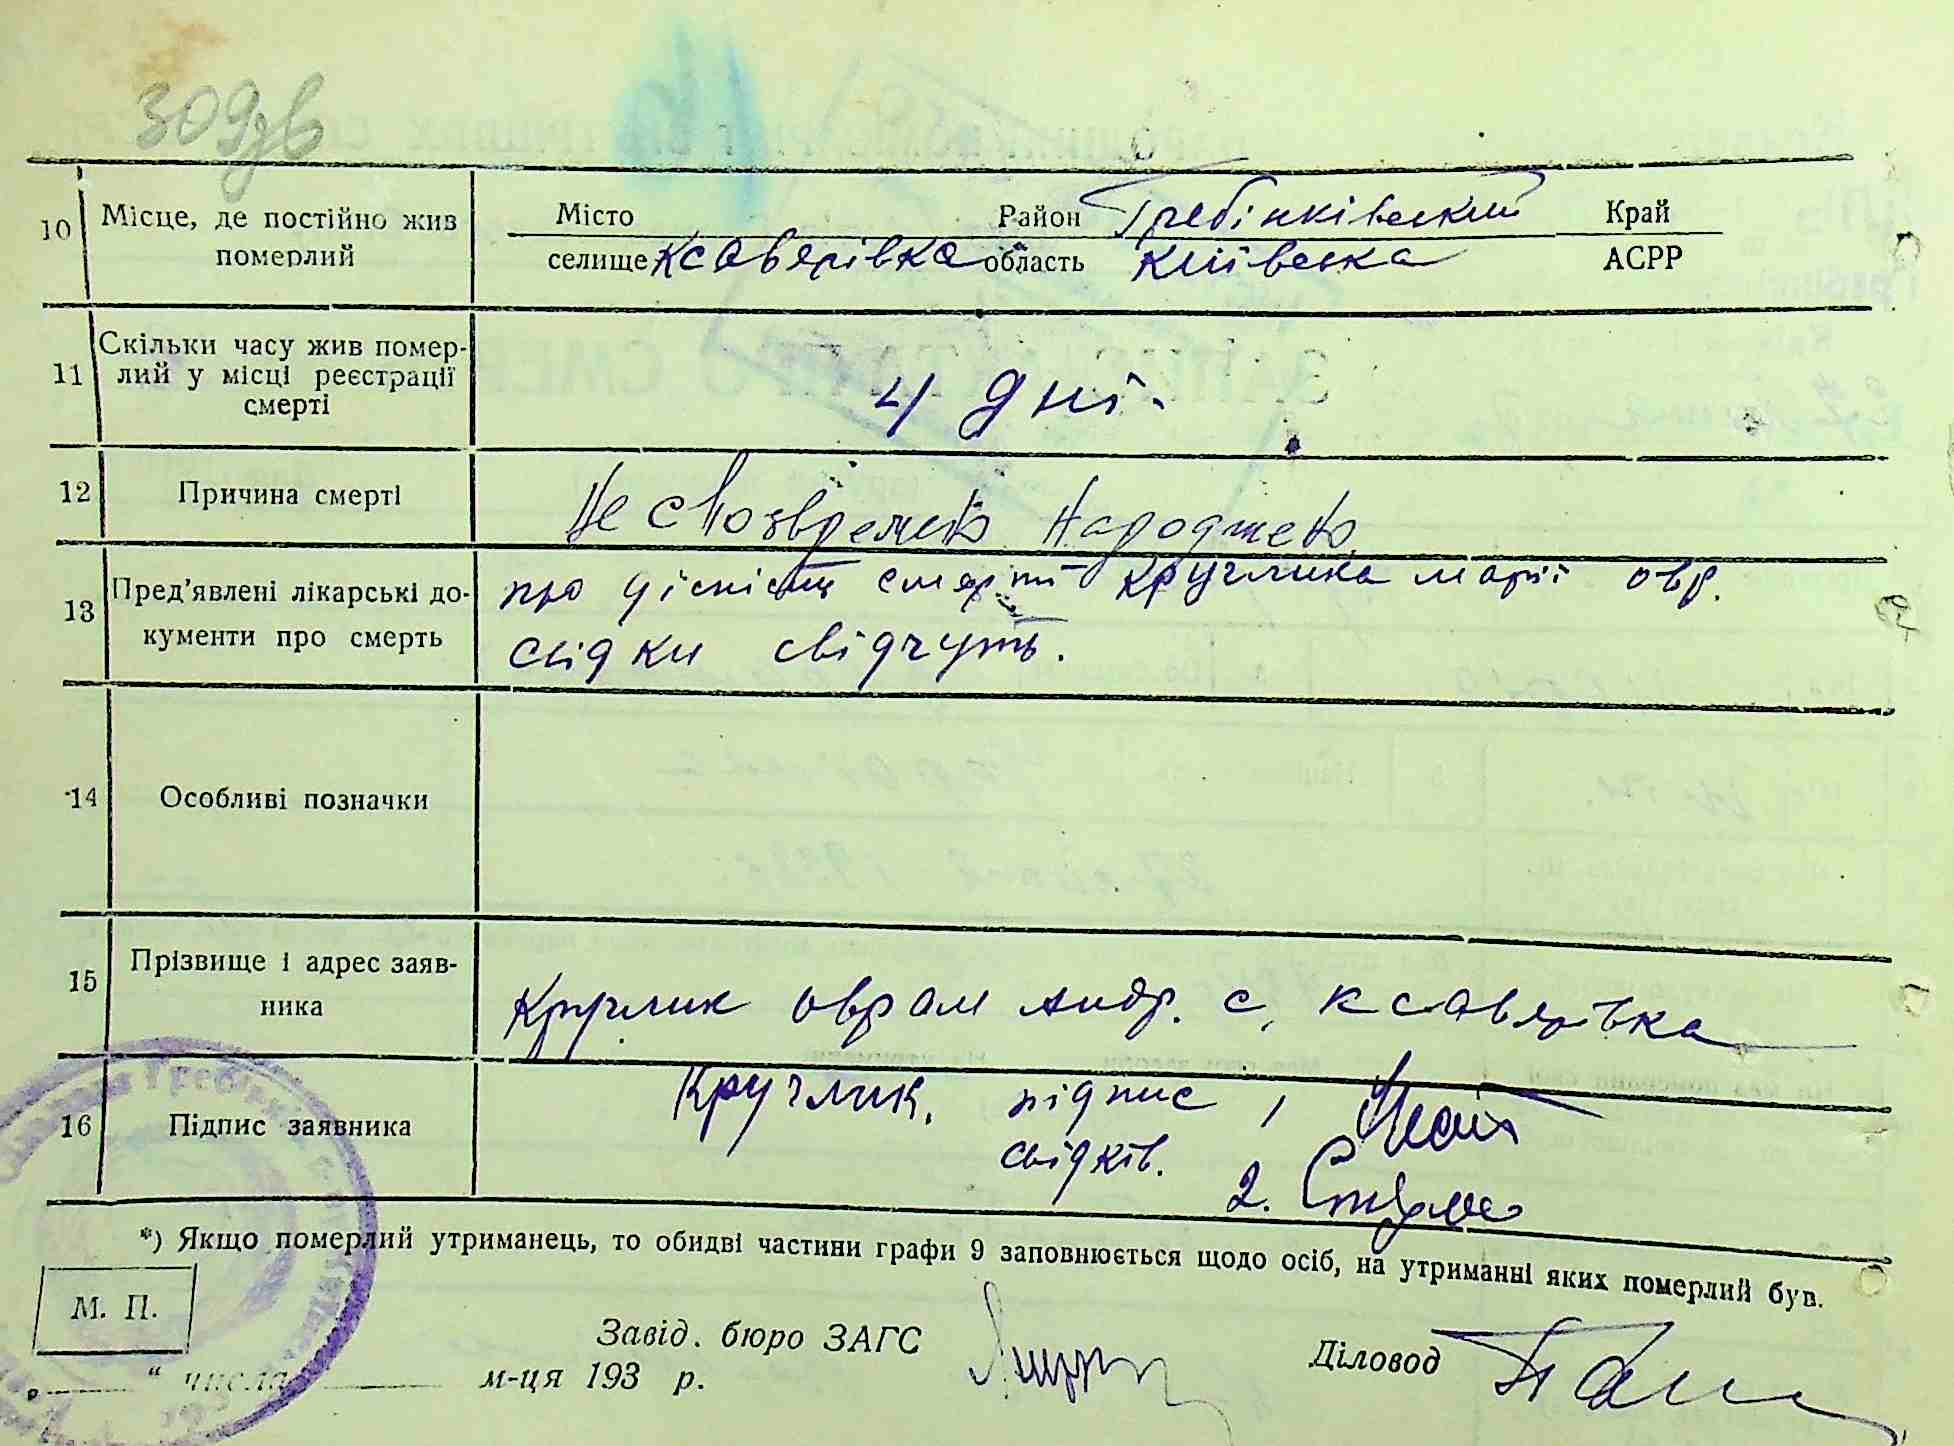 309зв
10 Місце, де постійно жив померлий Місто Район Гребінківський Край
селище Ксаверівка область Київська АСРР
11 Скільки часу жив помер-
лий у місці реєстрації
смерті
4 дні.
12 Причина смерті
Не своєвремено народжено
13 Пред'явлені лікарські до-
кументи про смерть
про дісність смерти Круглика марії овр.
свідки свідчуть.
14 Особливі позначки
15 Прізвище і адрес заяв-
ника
Круглик оврам Андр. с. Ксаверівка
16 Підпис заявника
Круглик. підпис 1
свідків.
2.
*) Якщо померлий утриманець, то обидві частини графи 9 заповнюється щодо осіб, на утриманні яких померлий був.
М. П.
Завід. бюро ЗАГС
Діловод
„ “ числа м-ця 193 р.